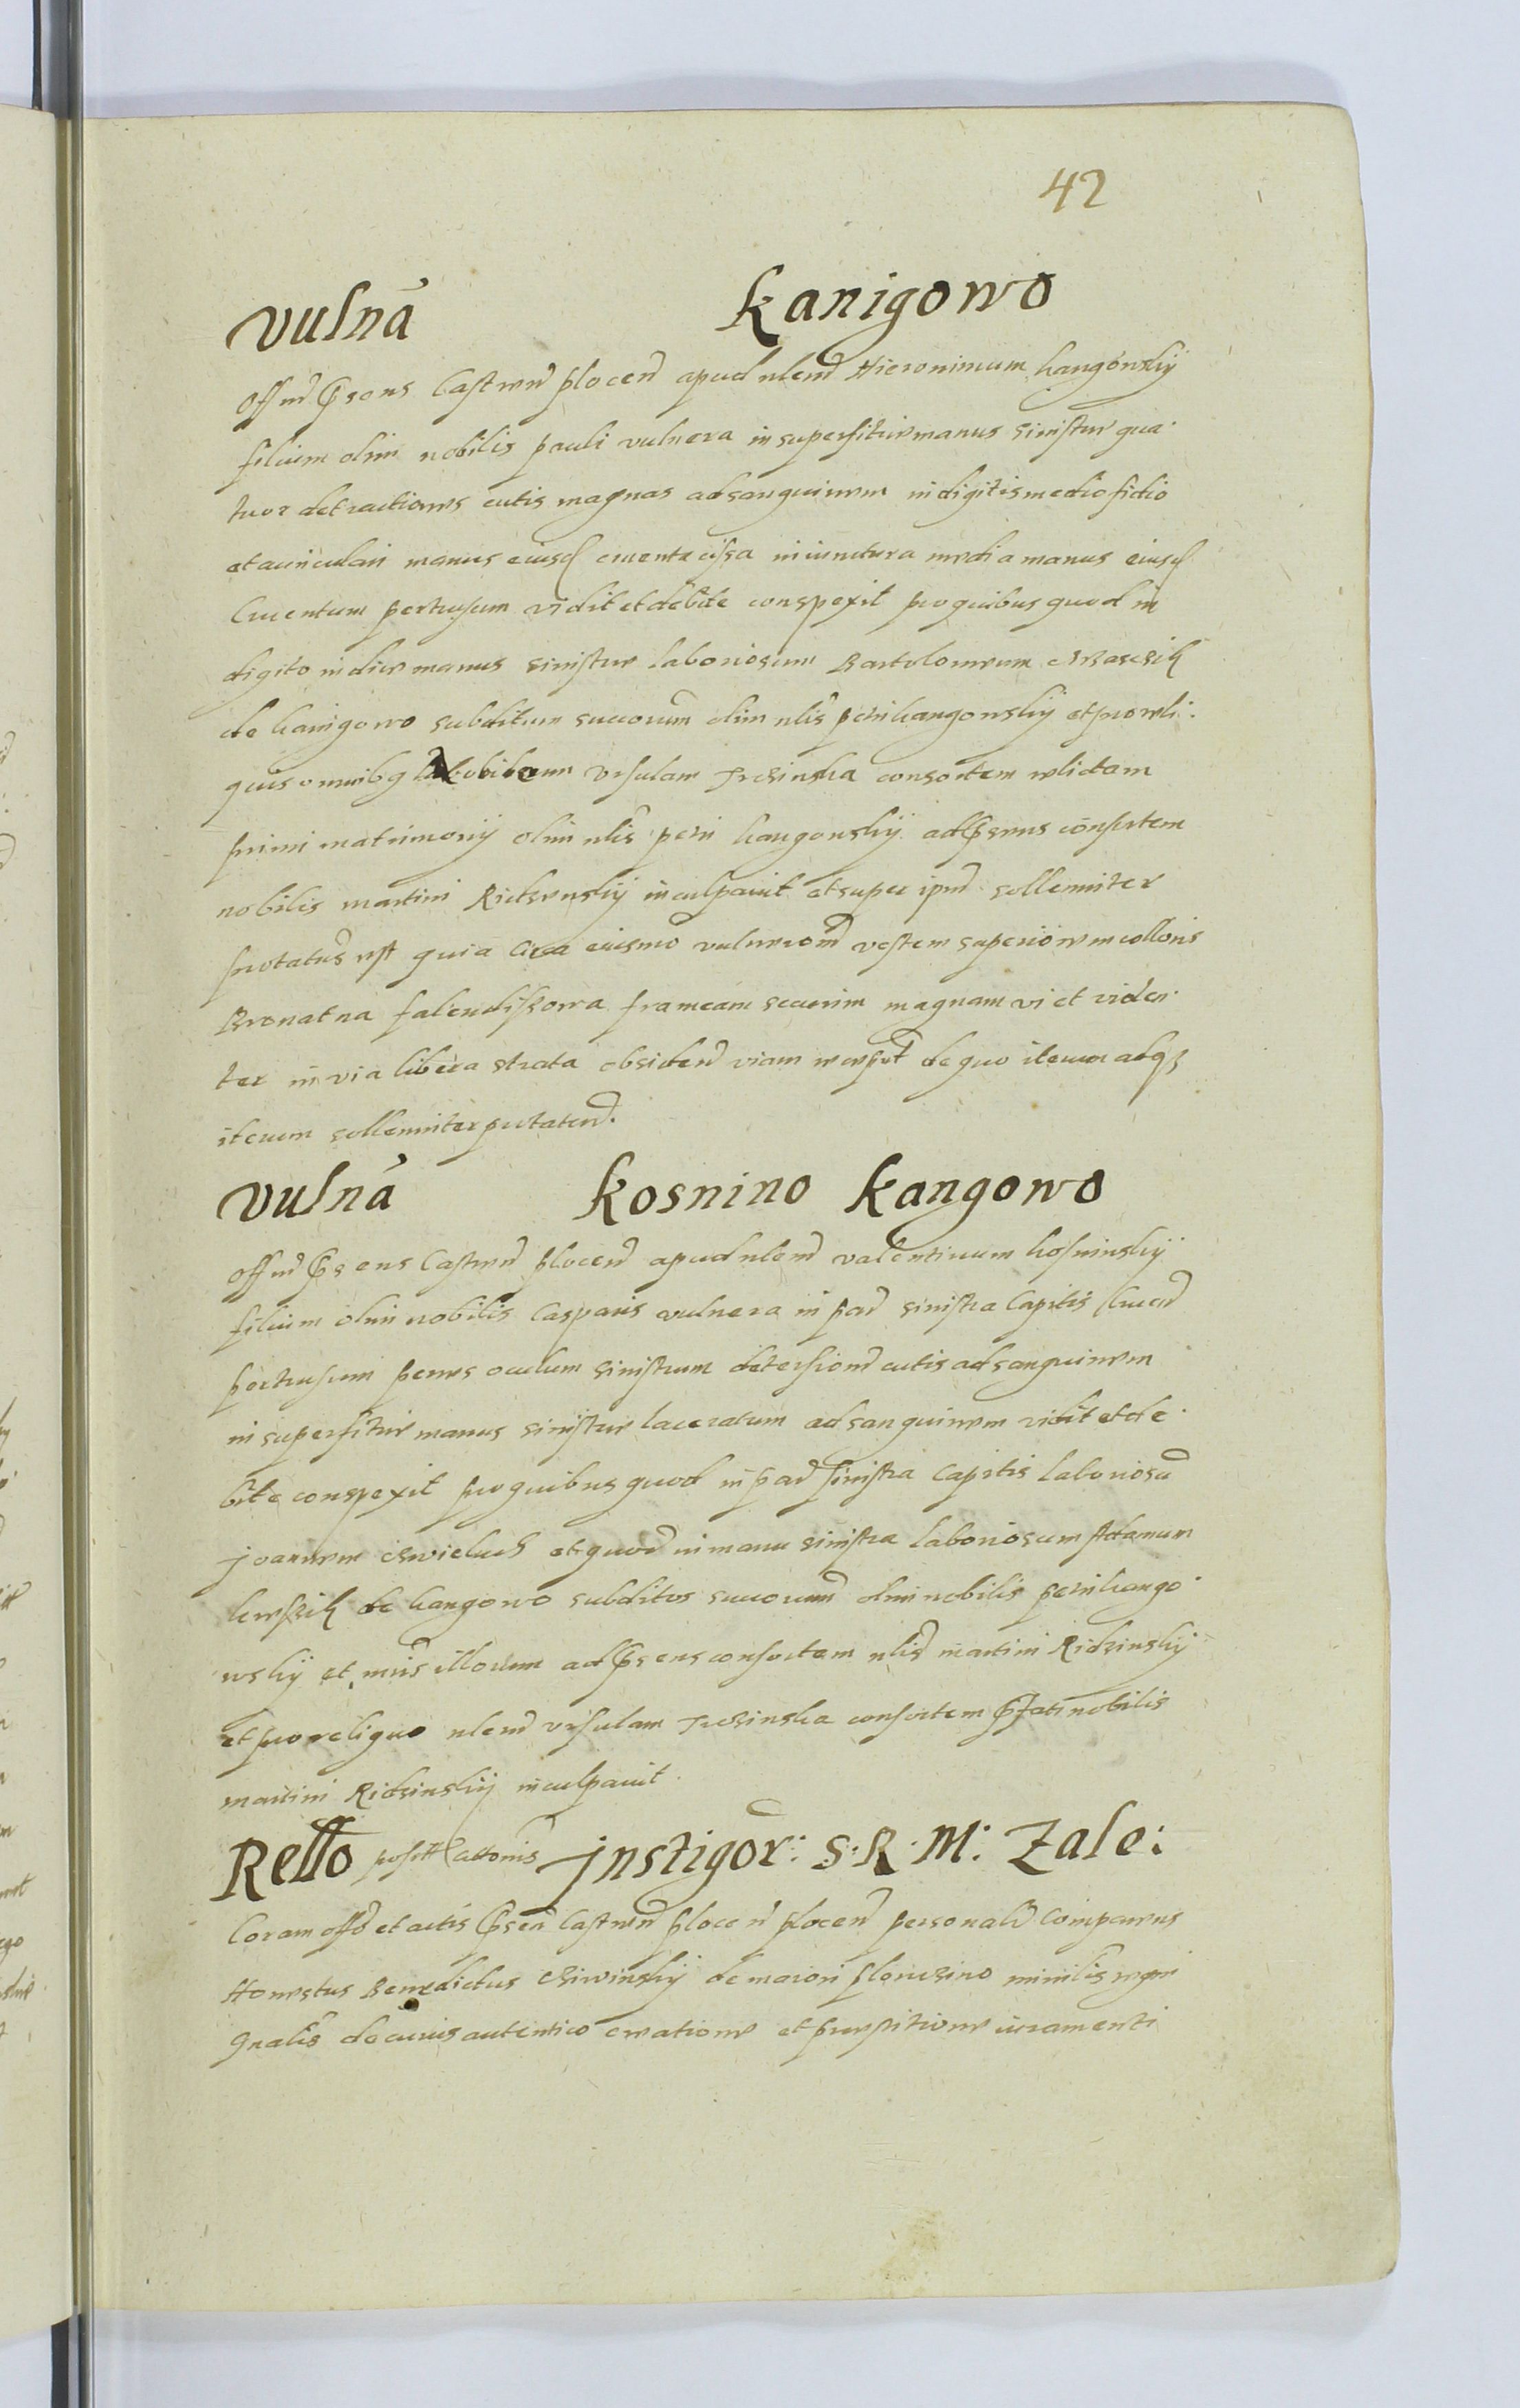 42
Vulnā Kanigowo
Offm Pnsens Castren̄ plocen̄ apud nlem̄ Hieronimum kangowskij
filium olim nobilis pauli vulnera in superfitie manus sinistre qua
tuor detractiones cutis magnas ad sanguinem in digitis medio fidio
et auriculari manus eiusd cruenta cissa in iunctura media manus eiusd
Cruentum pertusum vidit et debite conspexit pro quibus quod in
digito indice manus sinistre laboriosum Bartolomeum
de kanigowo subditum succorum̄ olim nlis petri kangowskij et pro reli:
quis omnibq nobilem Vrsulam Trczinska consortem relictam
primi matrimonij olim nlis petri kangowskij ad Pnsens consortem
nobilis martini Ridzenskij inculpavit et super ipm̄ sollemniter
protatus est quia circa eiusmo vulnerom̄ vestem superiorem colloris
Bronatna falendissowa frameam securim magnam vi et violen
ter in via libera strata obsiden̄ viam recepit de quo iterum atqz
iterum sollemniter protatur̄.
Vulnā Kosnino Kangowo
Offm Pnsens Castren̄ plocen̄ apud nlem̄ valentinum kosninskij
filium olim nobilis Casparis vulnera in par̄ sinistra Capitis Cruen̄
pertusum penes oculum sinistrum detersionem̄ cutis ad sanguinem
in superfitie manus sinistre laceratum ad sanguinem vidit et de
bite conspexit pro quibus quod in par̄ sinistra Capitis laboriosū
Joannem et quod in manu sinistra laboriosum Adamum
de kangowo subditos succorum̄ olim nobilis petri kango
wskij et mris illorum ad Pnsens consortem nlis martini Ridzinskij
et pro reliquo nlem̄ Vrsulam Trczinska consortem Pfati nobilis
martini Ridzinskij inculpavit.
Rello positt Cittonis Jnstigor: S: R: M: Zale:
Coram offo et actis Pnsen̄ Castren̄ plocen̄ plocen̄ personalr̄ Comparens
Honestus Benedictus de maiori plonczino minilis regni
Gnalis de cuius autentico creatione et prestitione iuramenti